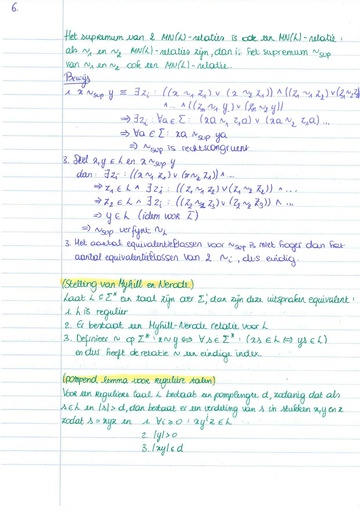 6.
Het supremum van 2 MN(L)-relaties is ook een MN(L)-relatie:
als ~₁ en ~₂ MN(L)-relaties zijn, dan is het supremum ~sup
van ~₁ en ~₂ ook een MN(L)-relatie.
Bewijs
1. x ~sup y ≡ ∃zᵢ : ((x ~₁ z₁) ∨ (x ~₂ z₁)) ∧ ((z₁ ~₁ z₂) ∨ (z₁ ~₂ z₂))
∧ ... ∧ ((zₙ ~₁ y) ∨ (zₙ ~₂ y))
⇒ ∃zᵢ : ∀a ∈ Σ : (xa ~₁ z₁a) ∨ (xa ~₂ z₁a) ...
⇒ ∀a ∈ Σ : xa ~sup ya
⇒ ~sup is rechtscongruent
3. Stel x,y ∈ L en x ~sup y
dan : ∃zᵢ : ((x ~₁ z₁) ∨ (x ~₂ z₁)) ∧ ...
⇒ z₁ ∈ L ∧ ∃zᵢ : ((z₁ ~₁ z₂) ∨ (z₁ ~₂ z₂)) ∧ ...
⇒ z₂ ∈ L ∧ ∃zᵢ : ((z₂ ~₁ z₃) ∨ (z₂ ~₂ z₃)) ∧ ...
⇒ y ∈ L (idem voor L̅)
⇒ ~sup verfijnt ~L
3. Het aantal equivalentieklassen voor ~sup is niet hoger dan het
aantal equivalentieklassen van 2 ~ᵢ, dus eindig.
(Stelling van Myhill en Nerode)
Laat L ⊆ Σ* een taal zijn over Σ, dan zijn deze uitspraken equivalent:
1. L is regulier
2. Er bestaat een Myhill-Nerode relatie voor L
3. Definieer ~ op Σ* : x ~ y ⇔ ∀s ∈ Σ* : (xs ∈ L ⇔ ys ∈ L)
en dus heeft de relatie ~ een eindige index.
(pompend lemma voor reguliere talen)
Voor een reguliere taal L bestaat een pomplengte d, zodanig dat als
s ∈ L en |s| > d, dan bestaat er een verdeling van s in stukken x, y en z
zodat s = xyz en 1. ∀i ≥ 0 : xyⁱz ∈ L
2. |y| > 0
3. |xy| ≤ d